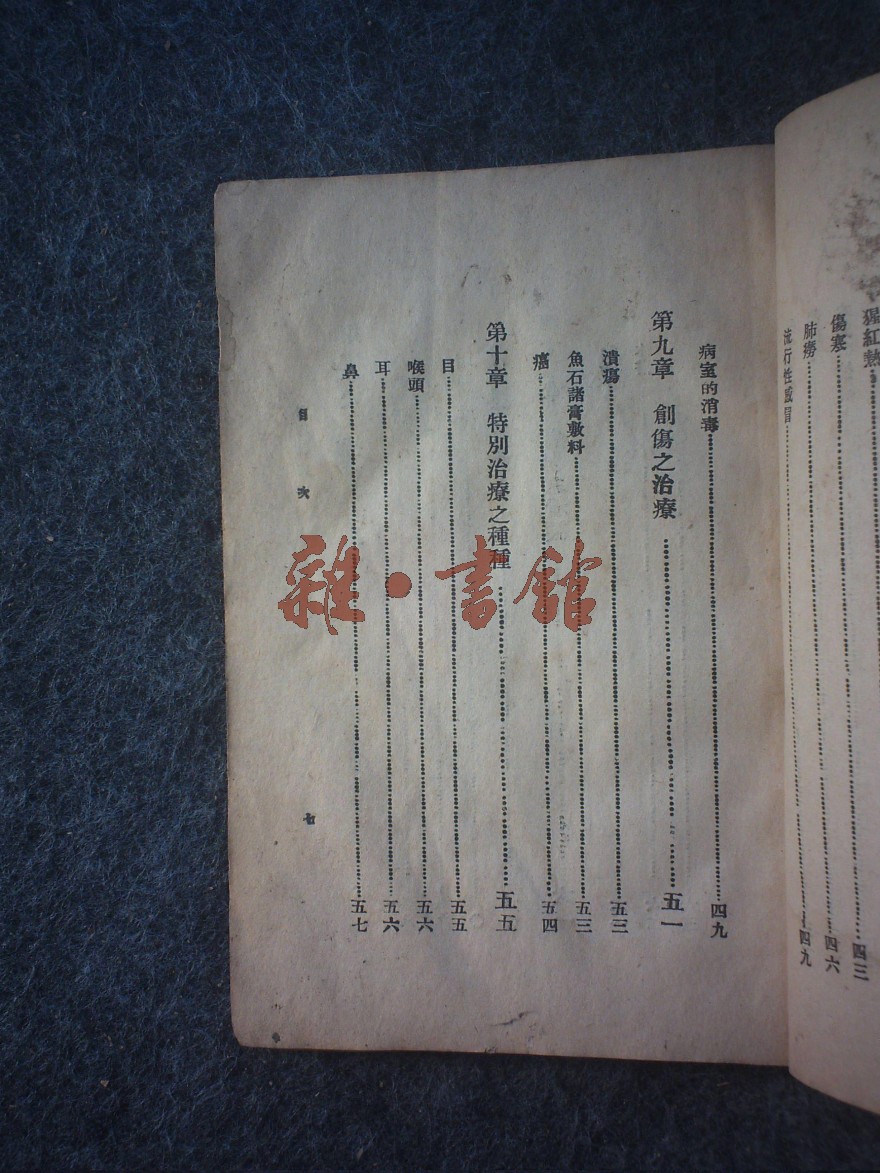 猩紅熱 四三
傷寒 四六
肺癆 四九
流行性感冒
病室的消毒 四九
第九章 創傷之治療 五一
潰瘍 五三
魚石諸膏敷料 五三
癌 五四
第十章 特別治療之種種 五五
目 五五
喉頭 五六
耳 五六
鼻 五七
目次
七
雜·書館